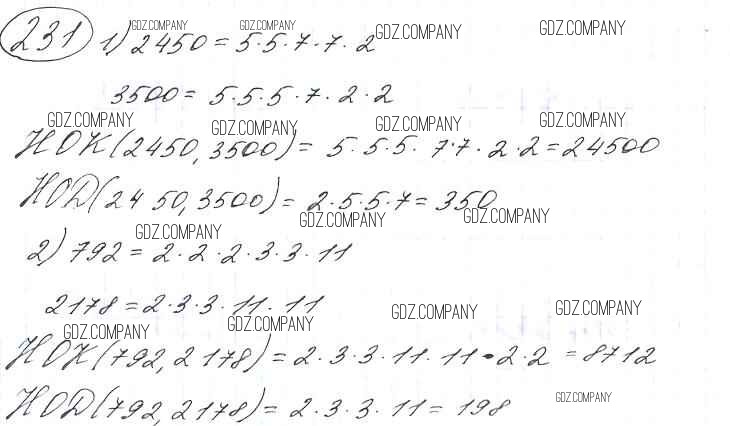 231 1) 2450 = 5·5·7·7·2
3500 = 5·5·5·7·2·2
НОК(2450, 3500) = 5·5·5·7·7·2·2 = 24500
НОД(2450, 3500) = 2·5·5·7 = 350
2) 792 = 2·2·2·3·3·11
2178 = 2·3·3·11·11
НОК(792, 2178) = 2·3·3·11·11·2·2 = 8712
НОД(792, 2178) = 2·3·3·11 = 198
GDZ.COMPANY GDZ.COMPANY GDZ.COMPANY GDZ.COMPANY
GDZ.COMPANY GDZ.COMPANY GDZ.COMPANY GDZ.COMPANY
GDZ.COMPANY GDZ.COMPANY GDZ.COMPANY
GDZ.COMPANY GDZ.COMPANY GDZ.COMPANY GDZ.COMPANY
GDZ.COMPANY